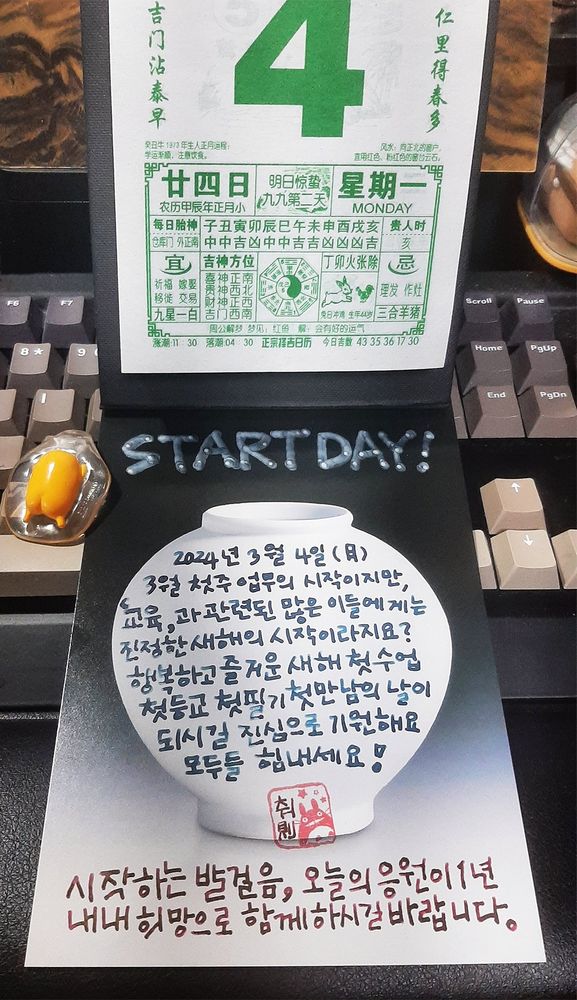 吉门沾泰早
仁里得春多
4
廿四日
农历甲辰年正月小
明日惊蛰
九九第二天
星期一
MONDAY
每日胎神
仓库门 外正南
子丑寅卯辰巳午未申酉戌亥
中中吉凶中中吉吉凶凶凶吉
贵人时
亥
宜
祈福 嫁娶
移徙 交易
九星一白
吉神方位
喜神正南
贵神西北
财神正西
吉门西南
丁卯火张除
兔日冲鸡 生年44岁
忌
理发 作灶
三合羊猪
周公解梦 梦见:红鱼 解:会有好的运气
涨潮:11:30 落潮:04:30 正宗择吉日历 今日吉数 43 35 36 17 30
F6
F7
8 *
9
I
Scroll
Pause
Home
PgUp
End
PgDn
↑
↓
START DAY!
2024년 3월 4일 (月)
3월 첫주 업무의 시작이지만,
"교육,과 관련된 많은 이들에게는
진정한 새해의 시작이라지요?
행복하고 즐거운 새해 첫수업
첫등교 첫필기 첫만남의 날이
되시길 진심으로 기원해요
모두들 힘내세요!
시작하는 발걸음, 오늘의 응원이 1년
내내 희망으로 함께하시길 바랍니다.